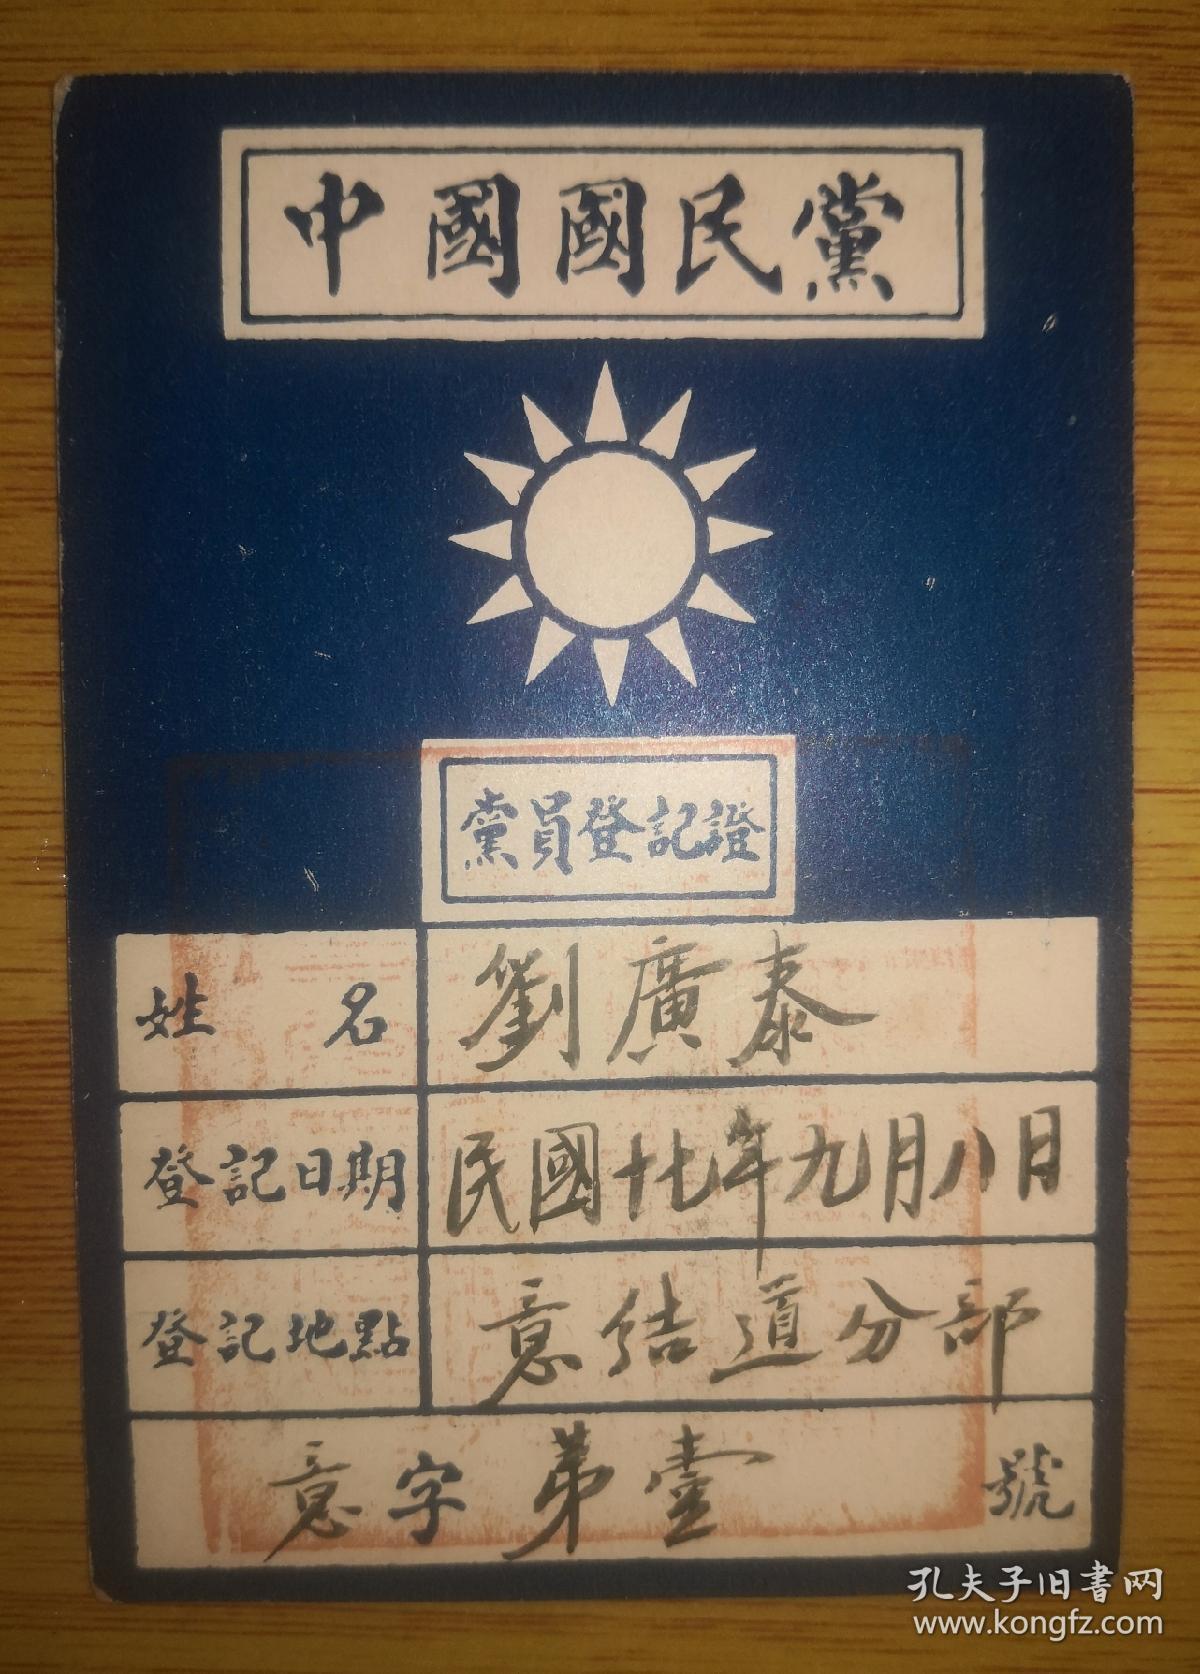 中國國民黨
黨員登記證
姓名 劉廣泰
登記日期 民國十七年九月八日
登記地點 意結道分部
意字第壹號
孔夫子旧書网
www.kongfz.com